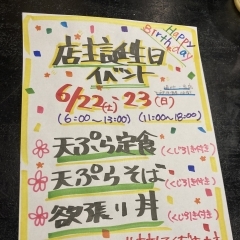 Happy Birthday
店主誕生日
イベント
6/22(土)・23(日)
(6:00~13:00) (11:00~18:00)
天ぷら定食 (くじ引き付き)
天ぷらそば (くじ引き付き)
欲張り丼 (くじ引き付き)